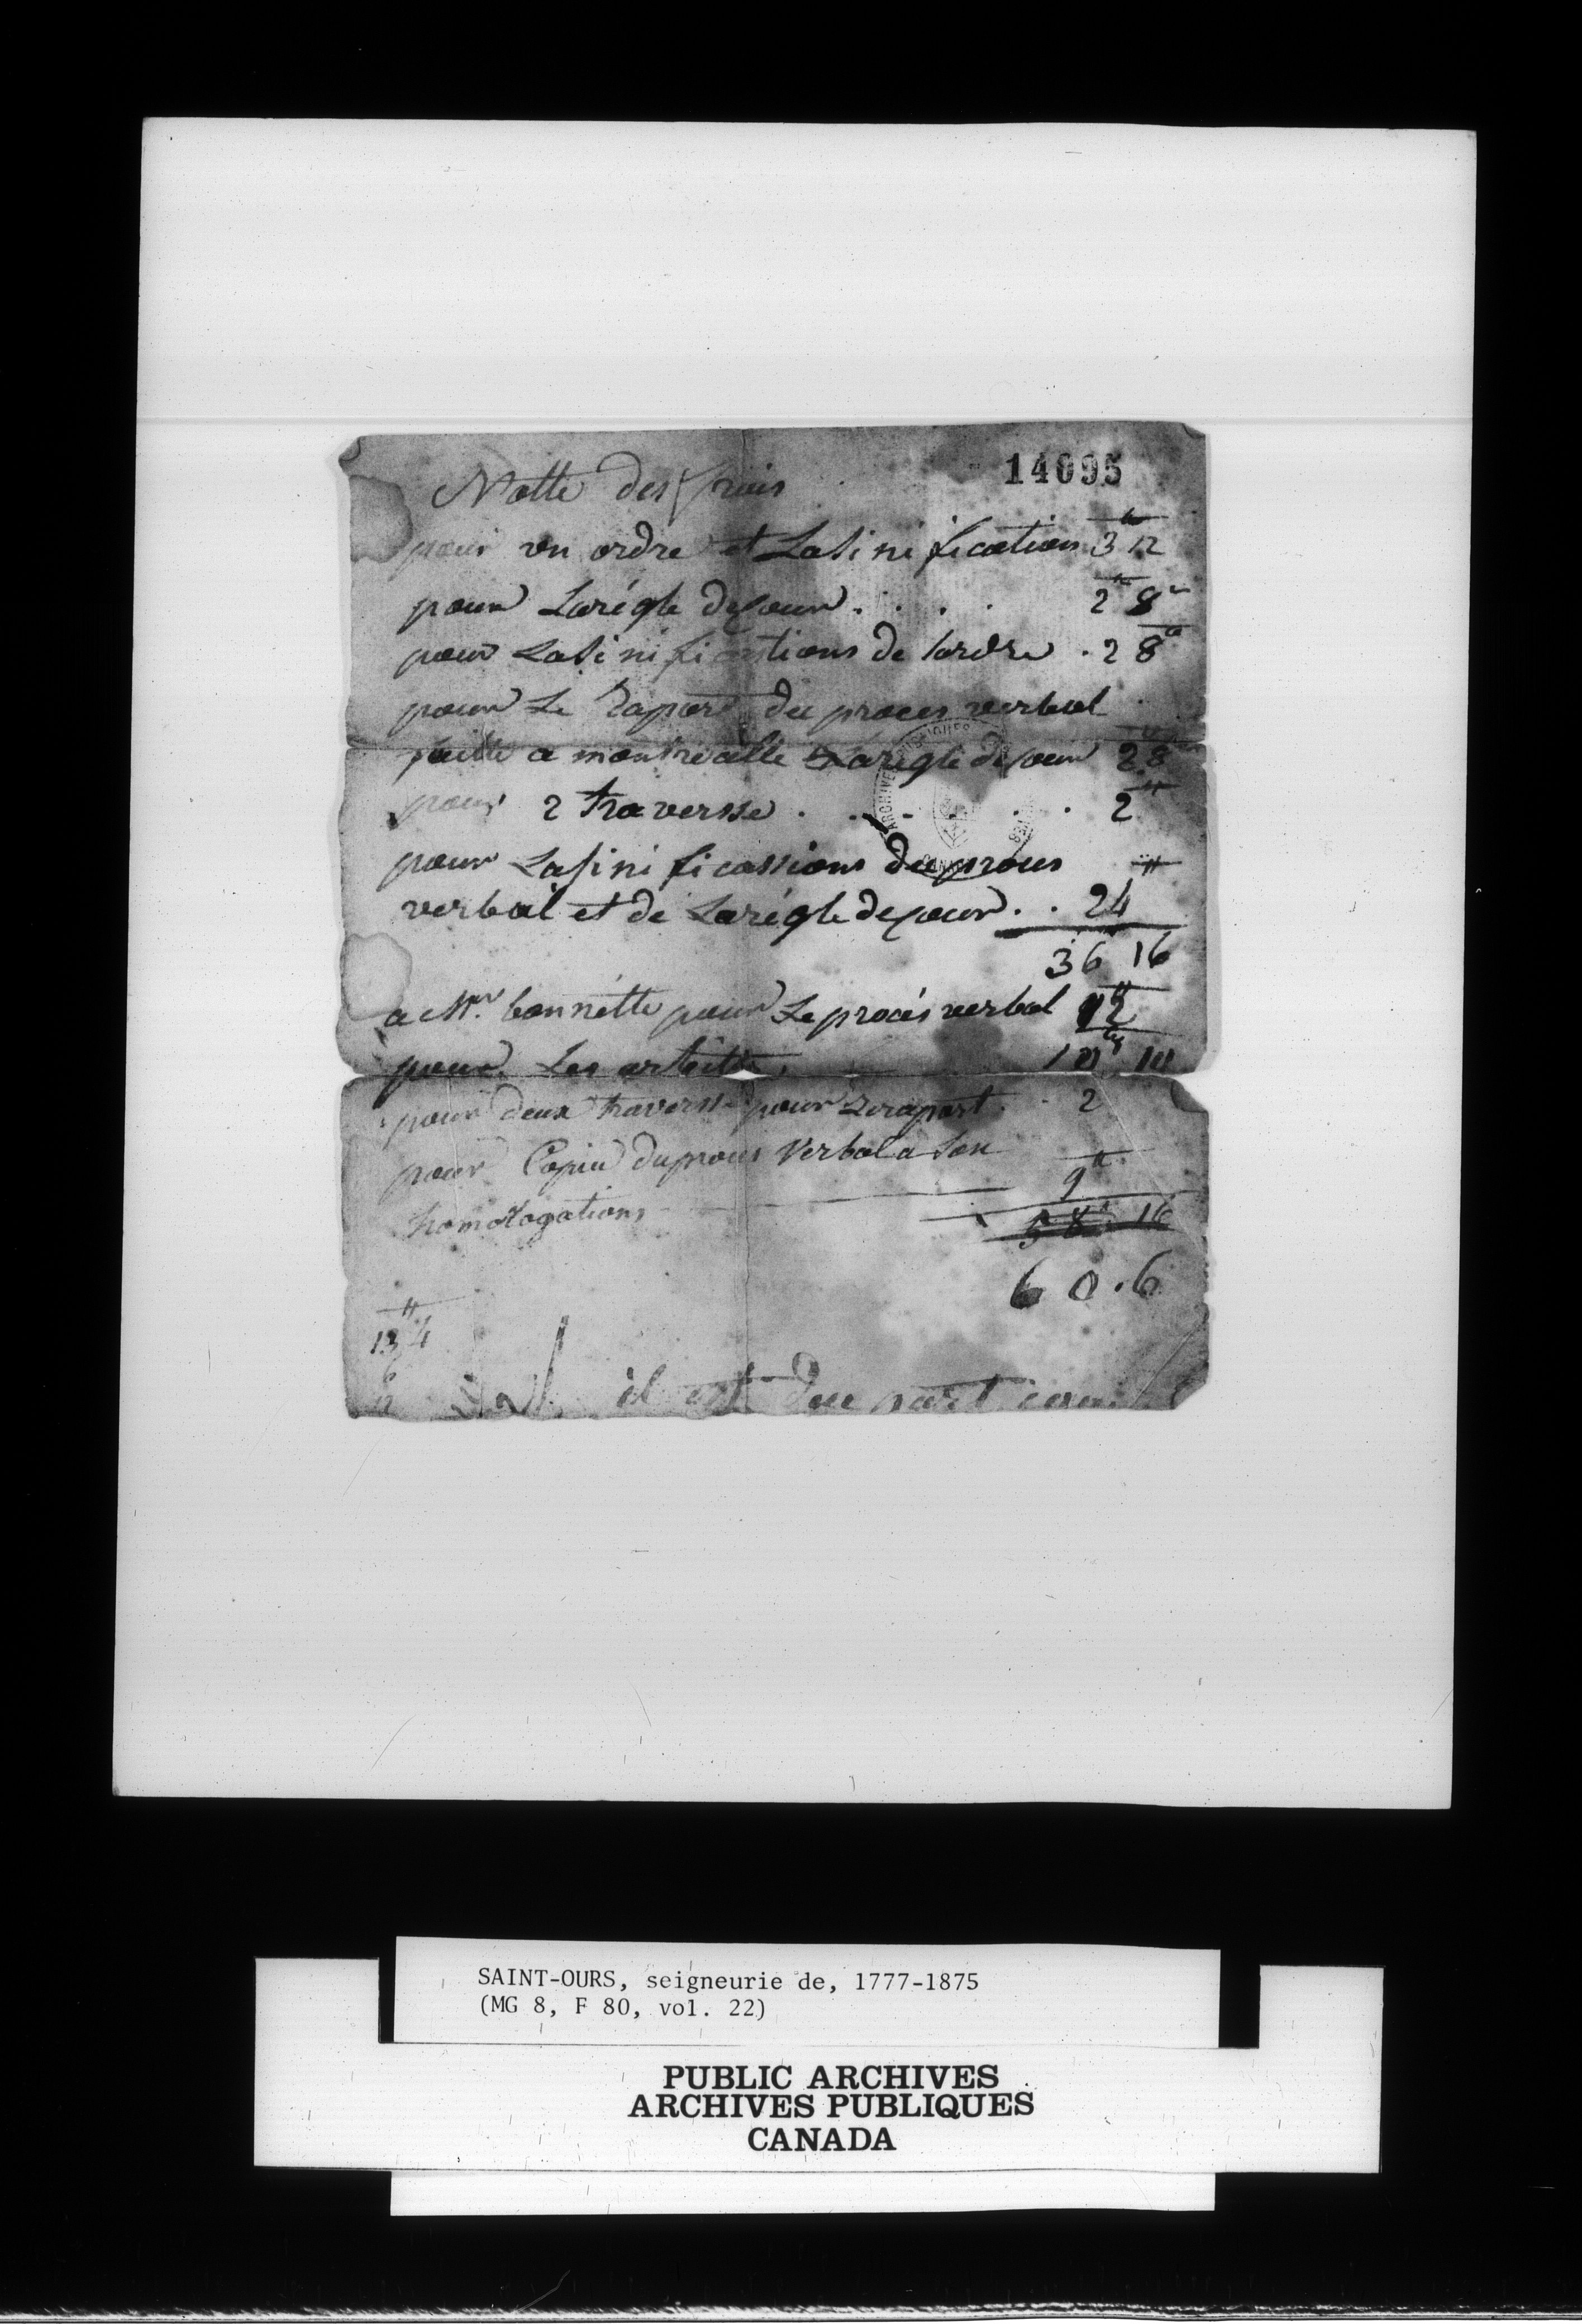 14095
Notte des frais
pour un ordre et La Sinification 3 12
pour La régle de Cour . . . . 2 8
pour La Sinifications de lordre . 2 8
pour Le Raport du proces verbal
faitte a montrealle La régle de Cour 2 8
pour 2 traversse . . . . . 2
pour La Sinificassions du proces
verbal et de La régle de Cour . . 24
36 16
a Mr. bonnétte pour Le procés verbal 12
pour Les arbitte 10
pour deux traverse pour Le raport . 2
pour Copie du proces Verbal a Son
homologations 9
58 16
60 . 6
13 4
il est due
SAINT-OURS, seigneurie de, 1777-1875
(MG 8, F 80, vol. 22)
PUBLIC ARCHIVES
ARCHIVES PUBLIQUES
CANADA